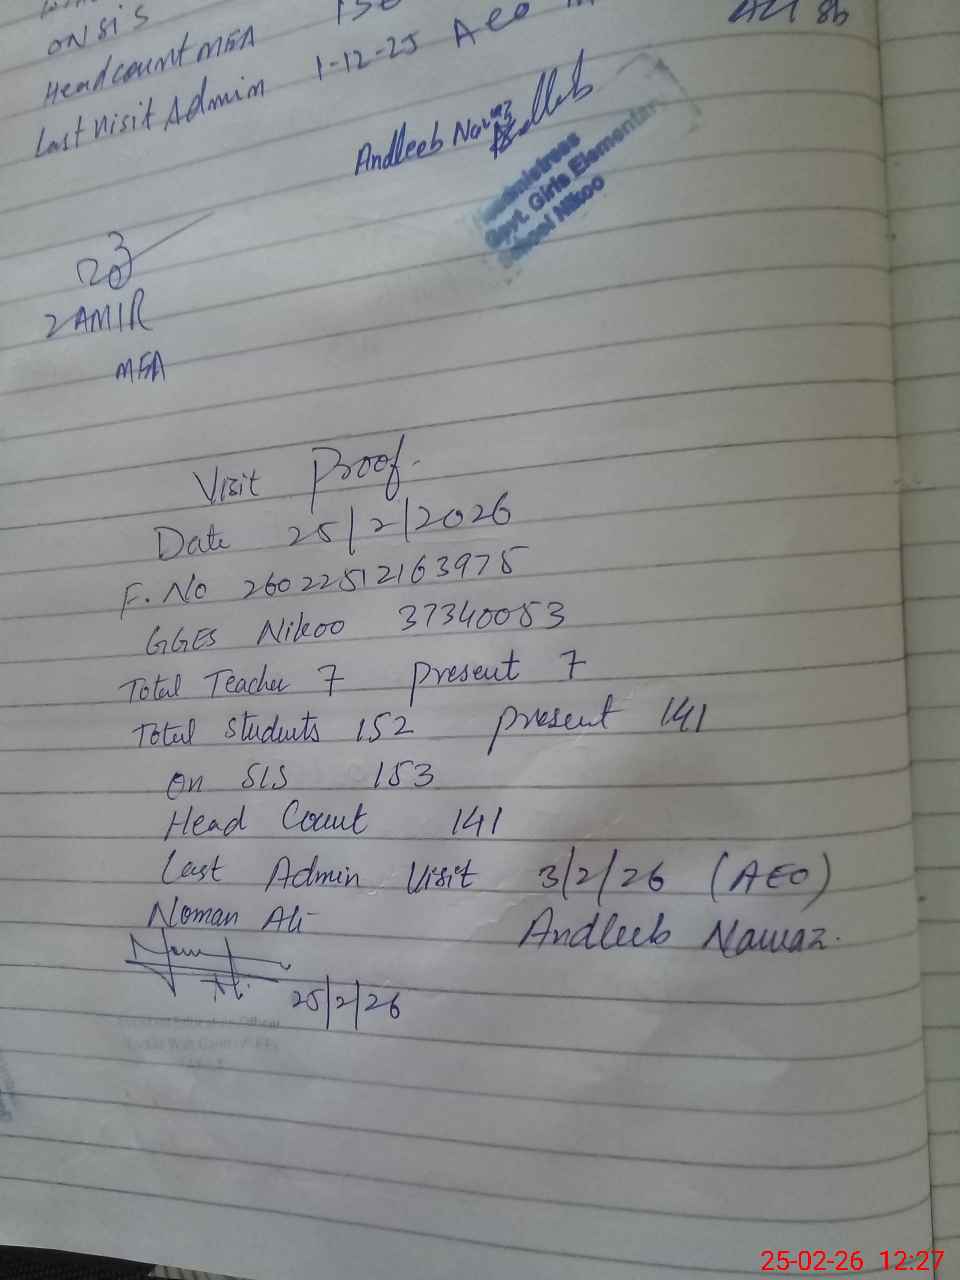 ON SIS
Headcount MEA
Last Visit Admin 1-12-25 AEO
Andleeb Nawaz
Headmistress
Govt. Girls Elementary
School Nikoo
ZAMIR
MEA
Visit Proof.
Date 25/2/2026
F. No 26022512163975
GGES Nikoo 37340053
Total Teacher 7 Present 7
Total Students 152 Present 141
On SIS 153
Head Count 141
Last Admin Visit 3/2/26 (AEO)
Noman Ali Andleeb Nawaz.
25/2/26
25-02-26 12:27